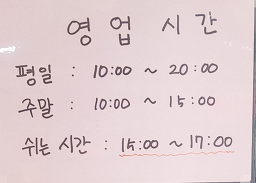 영 업 시 간
평일 : 10:00 ~ 20:00
주말 : 10:00 ~ 15:00
쉬는 시간 : 15:00 ~ 17:00